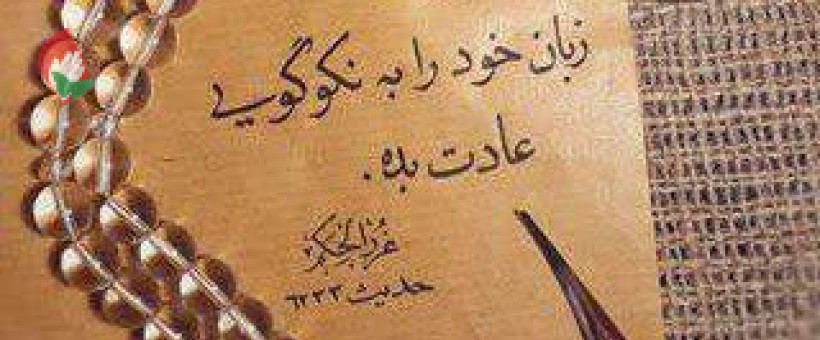 زبان خود را به نکوگویی
عادت بده.
غررالحکم
حدیث ۶۲۳۳